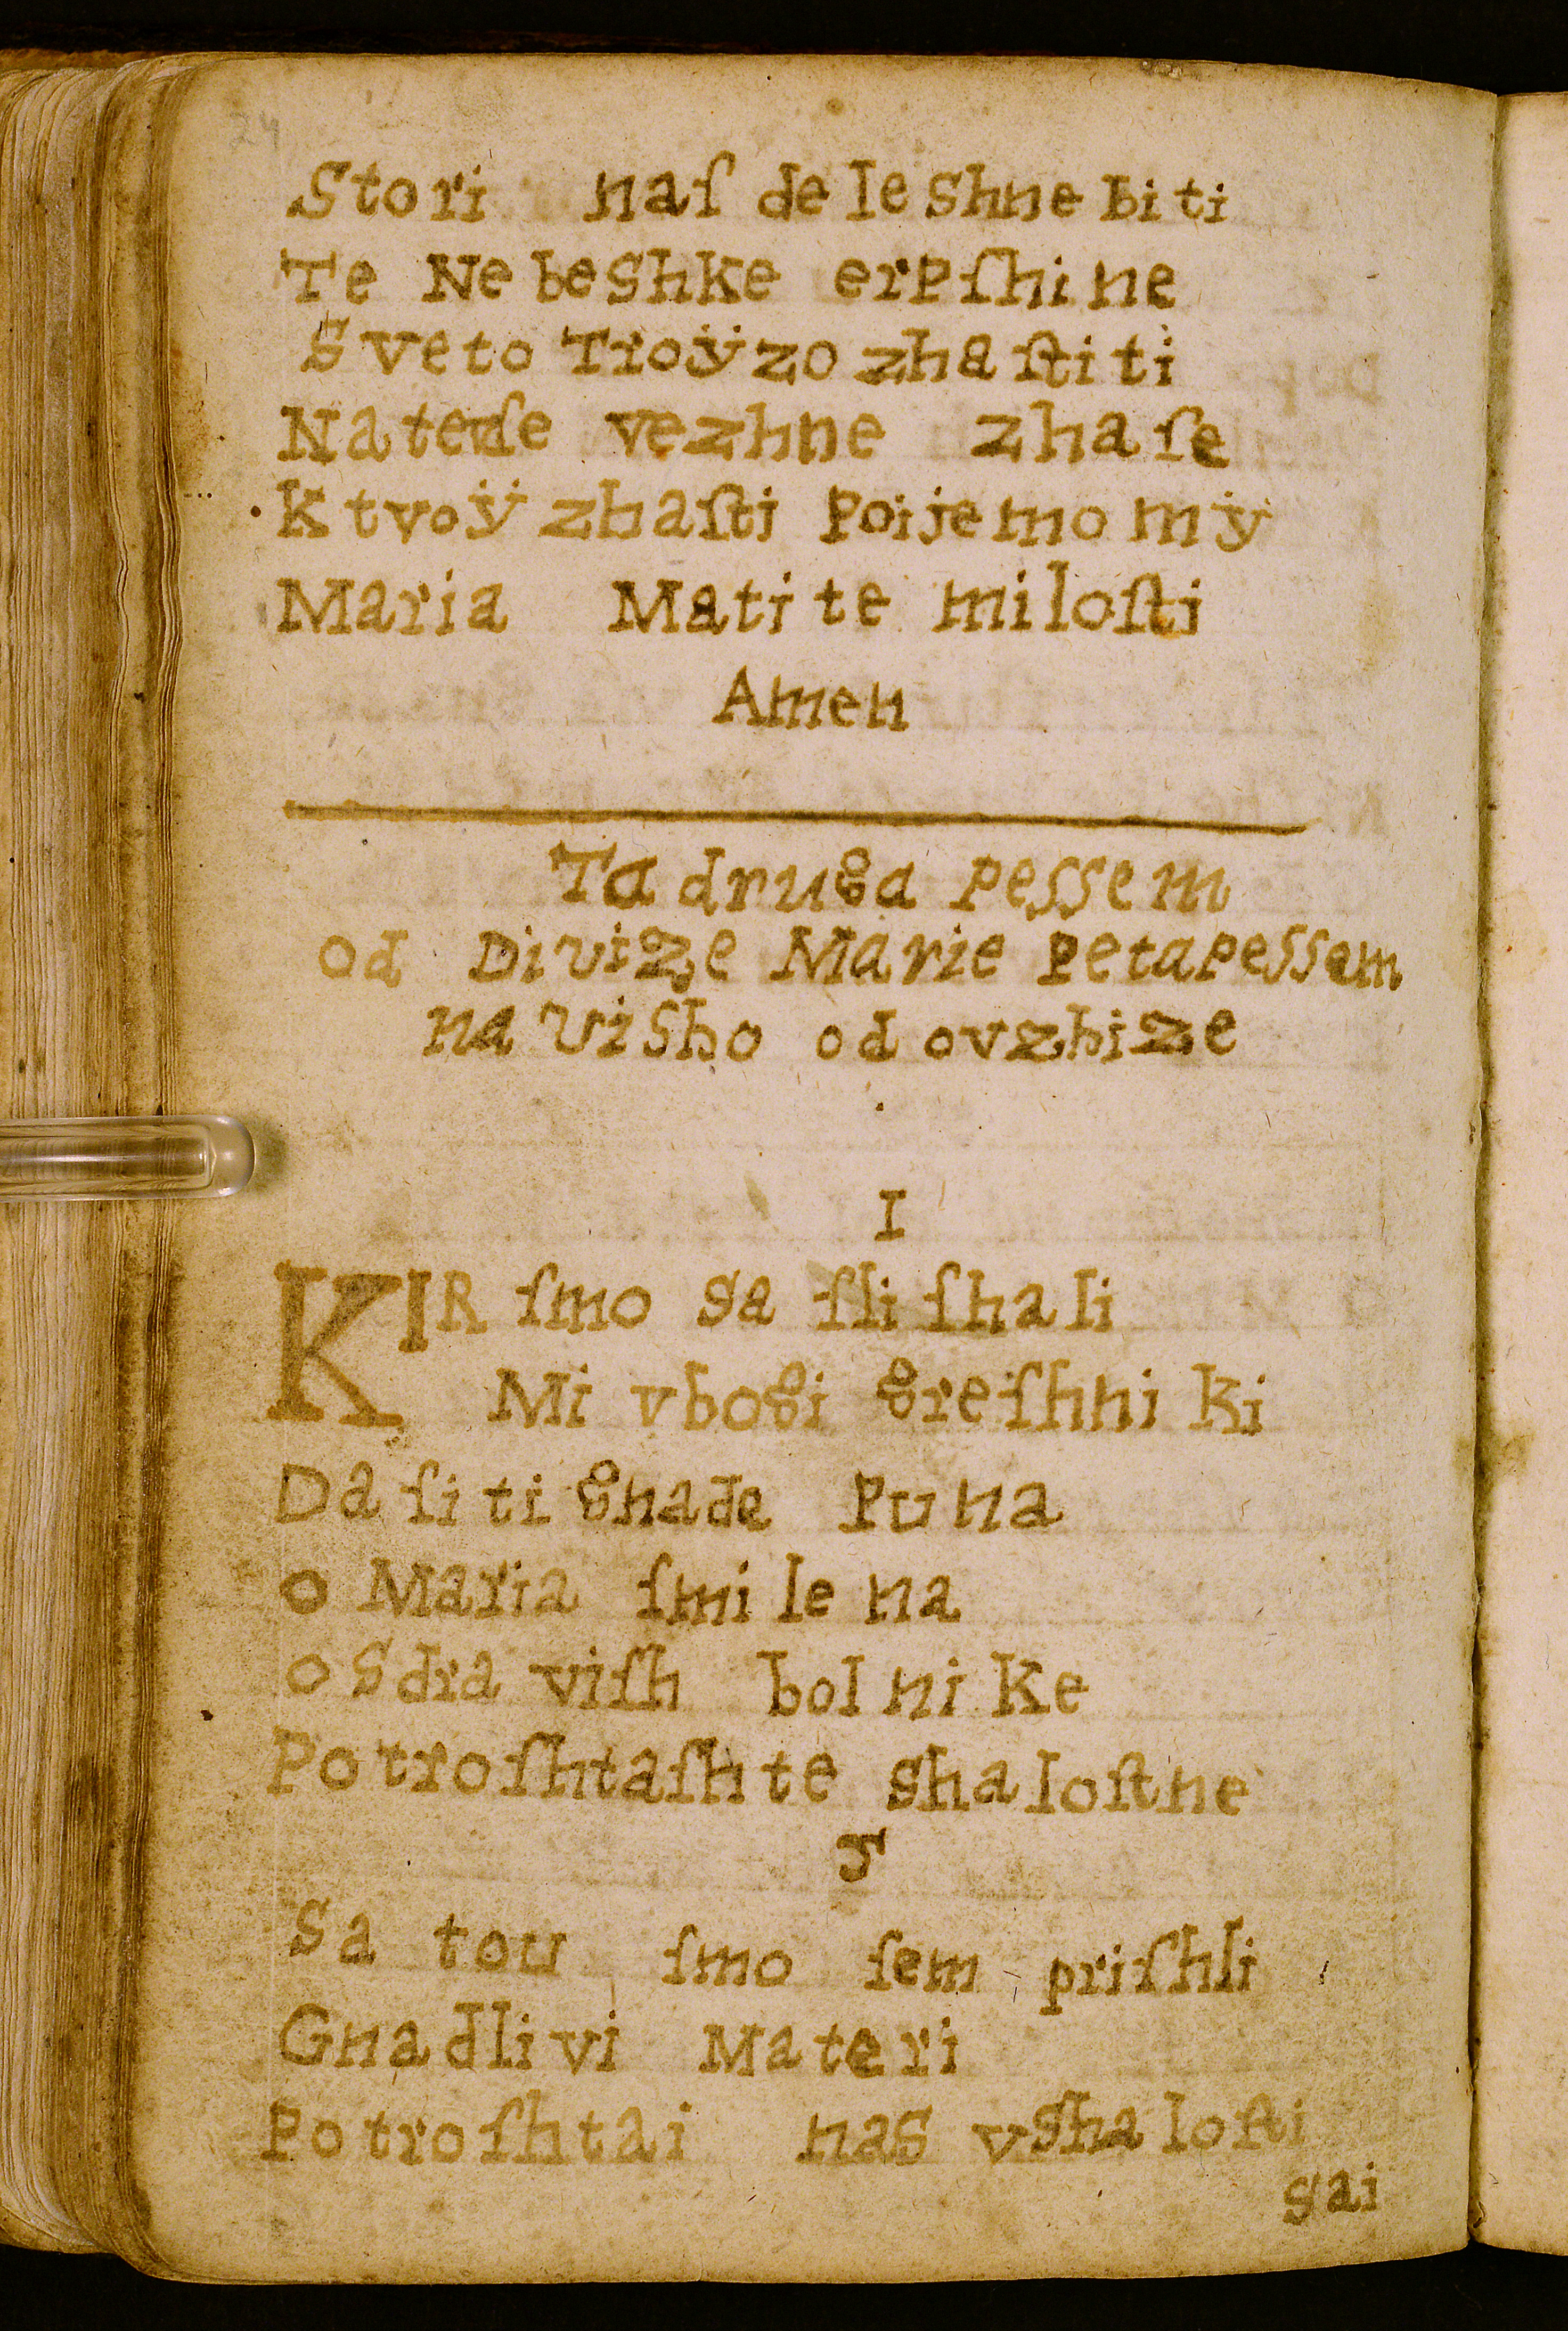 24
Stori naſ deleshne biti
Te Nebeshke erpſhine
Sveto Troÿzo zhaſtiti
Na teiſe vezhne zhaſe
K tvoÿ zhaſti Poijemo mÿ
Maria Mati te miloſti
Amen
Ta druga Pessem
od Divize Marie Peta Pessem
na Visho od ovzhize
I
KIR ſmo Sa ſliſhali
Mi vbogi greiſhniki
Da ſi ti gnade Puna
o Maria ſmilena
o Sdraviſh bolnike
Potroſhtaſh te shaloſtne
Sa tou ſmo ſem priſhli
Gnadlivi Materi
Potroſhtai nas vshaloſti
sai